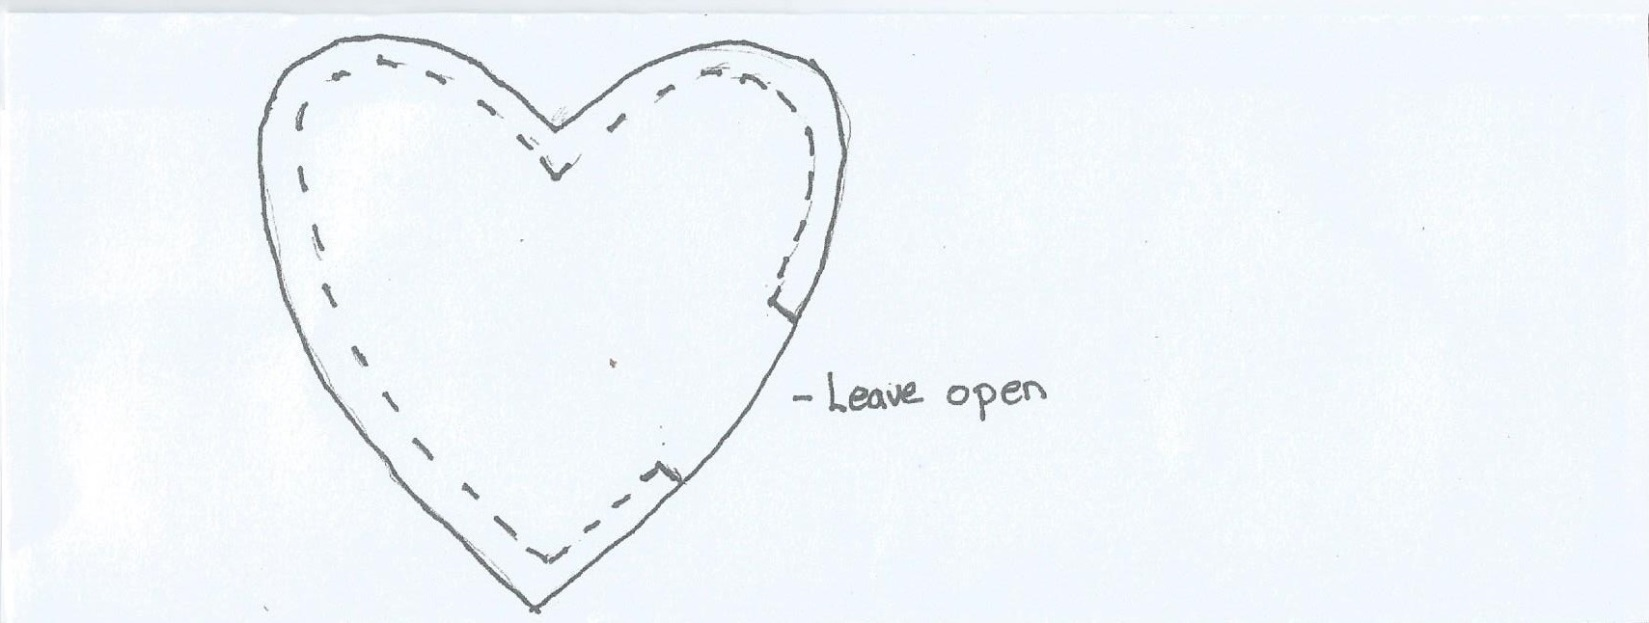 - Leave open